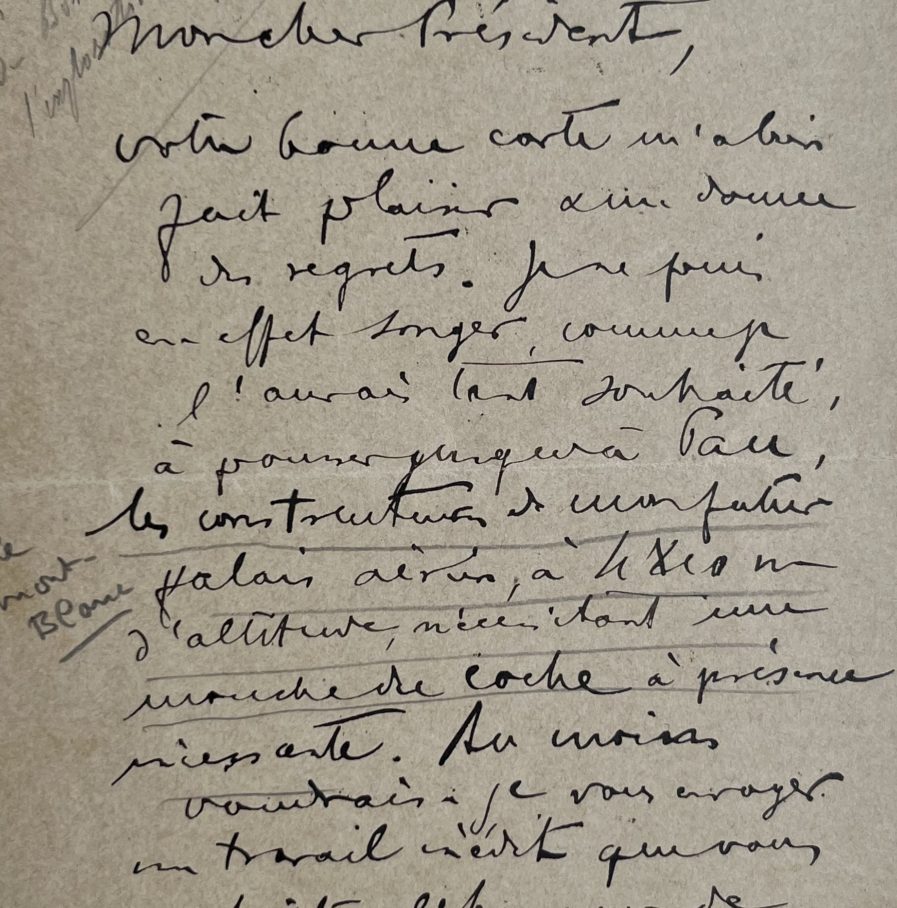 l'explos
Mon cher Président,
votre bonne carte m'a bien
fait plaisir & me donne
des regrets. Je ne puis
en effet songer, comme je
l'aurais tant souhaité,
à pousser jusqu'à Pau,
les constructeurs de mon futur
palais aérien, à 4810 m
d'altitude, nécessitant une
mouche du coche à présence
incessante. Au moins
voudrais-je vous envoyer
un travail inédit que vous
mont-
Blanc